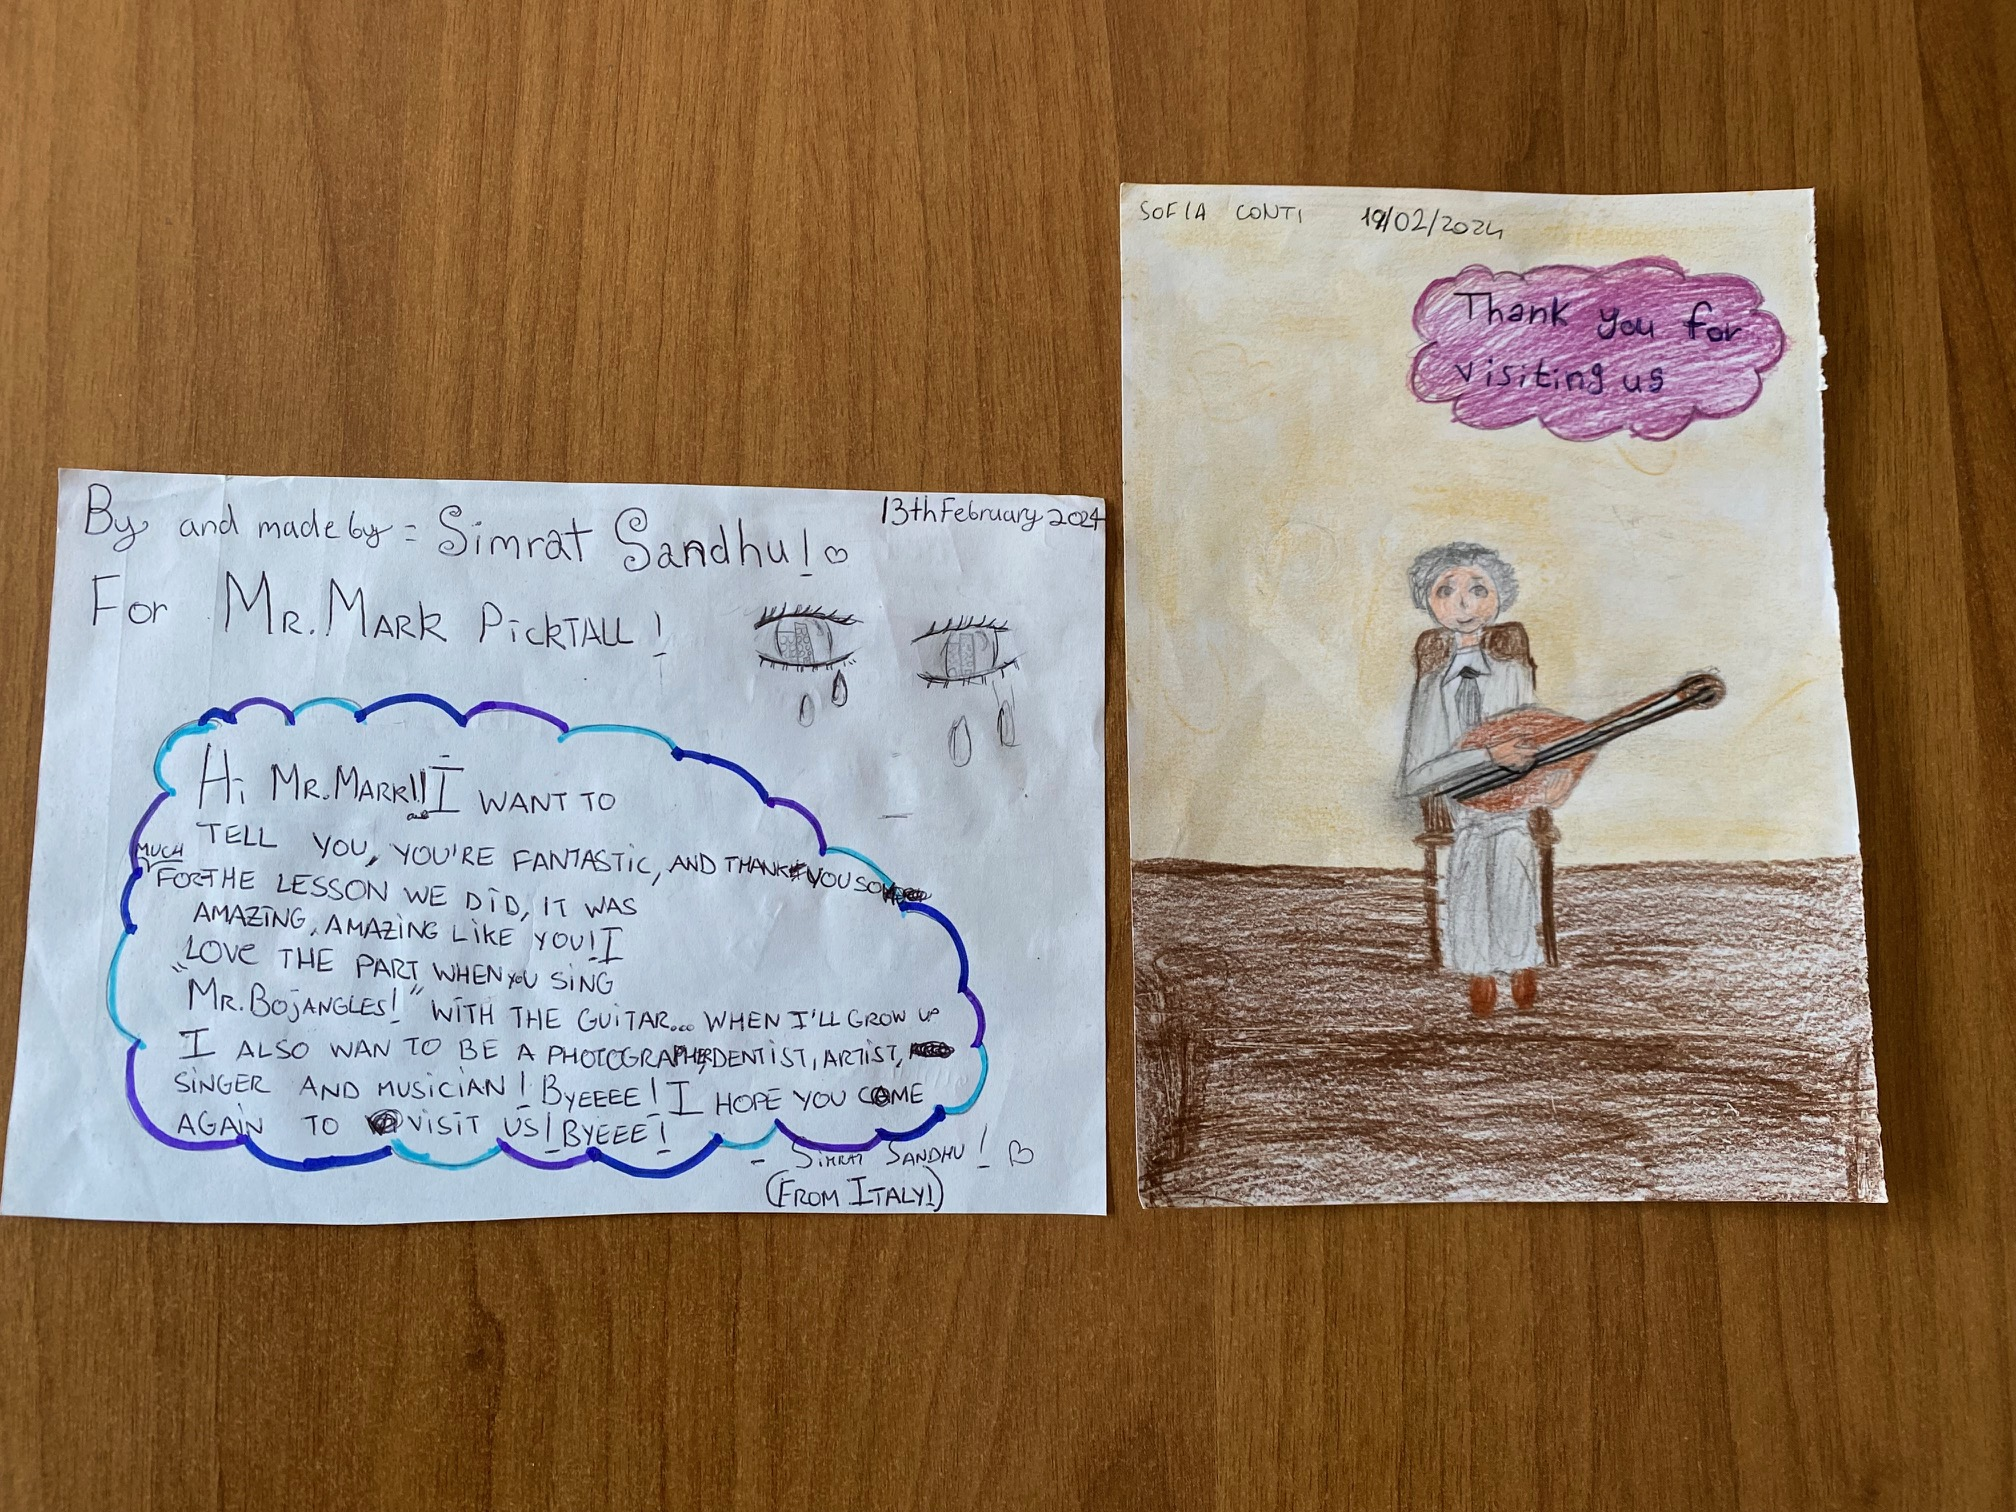 By and made by = Simrat Sandhu!
13th February 2024
For MR. MARK PickTALL!
Hi MR. MARK!! I WANT TO
TELL YOU, YOU'RE FANTASTIC, AND THANK YOU SO
MUCH
FOR THE LESSON WE DID, IT WAS
AMAZING, AMAZING LIKE YOU! I
LOVE THE PART WHEN YOU SING
"MR. BOJANGLES!" WITH THE GUITAR... WHEN I'LL GROW UP
I ALSO WAN TO BE A PHOTOGRAPHER, DENTIST, ARTIST,
SINGER AND MUSICIAN! BYEEEE! I HOPE YOU COME
AGAIN TO VISIT US! BYEEE!
- SIMRAT SANDHU!
(FROM ITALY!)
SOFIA CONTI /02/2024
Thank you for
visiting us